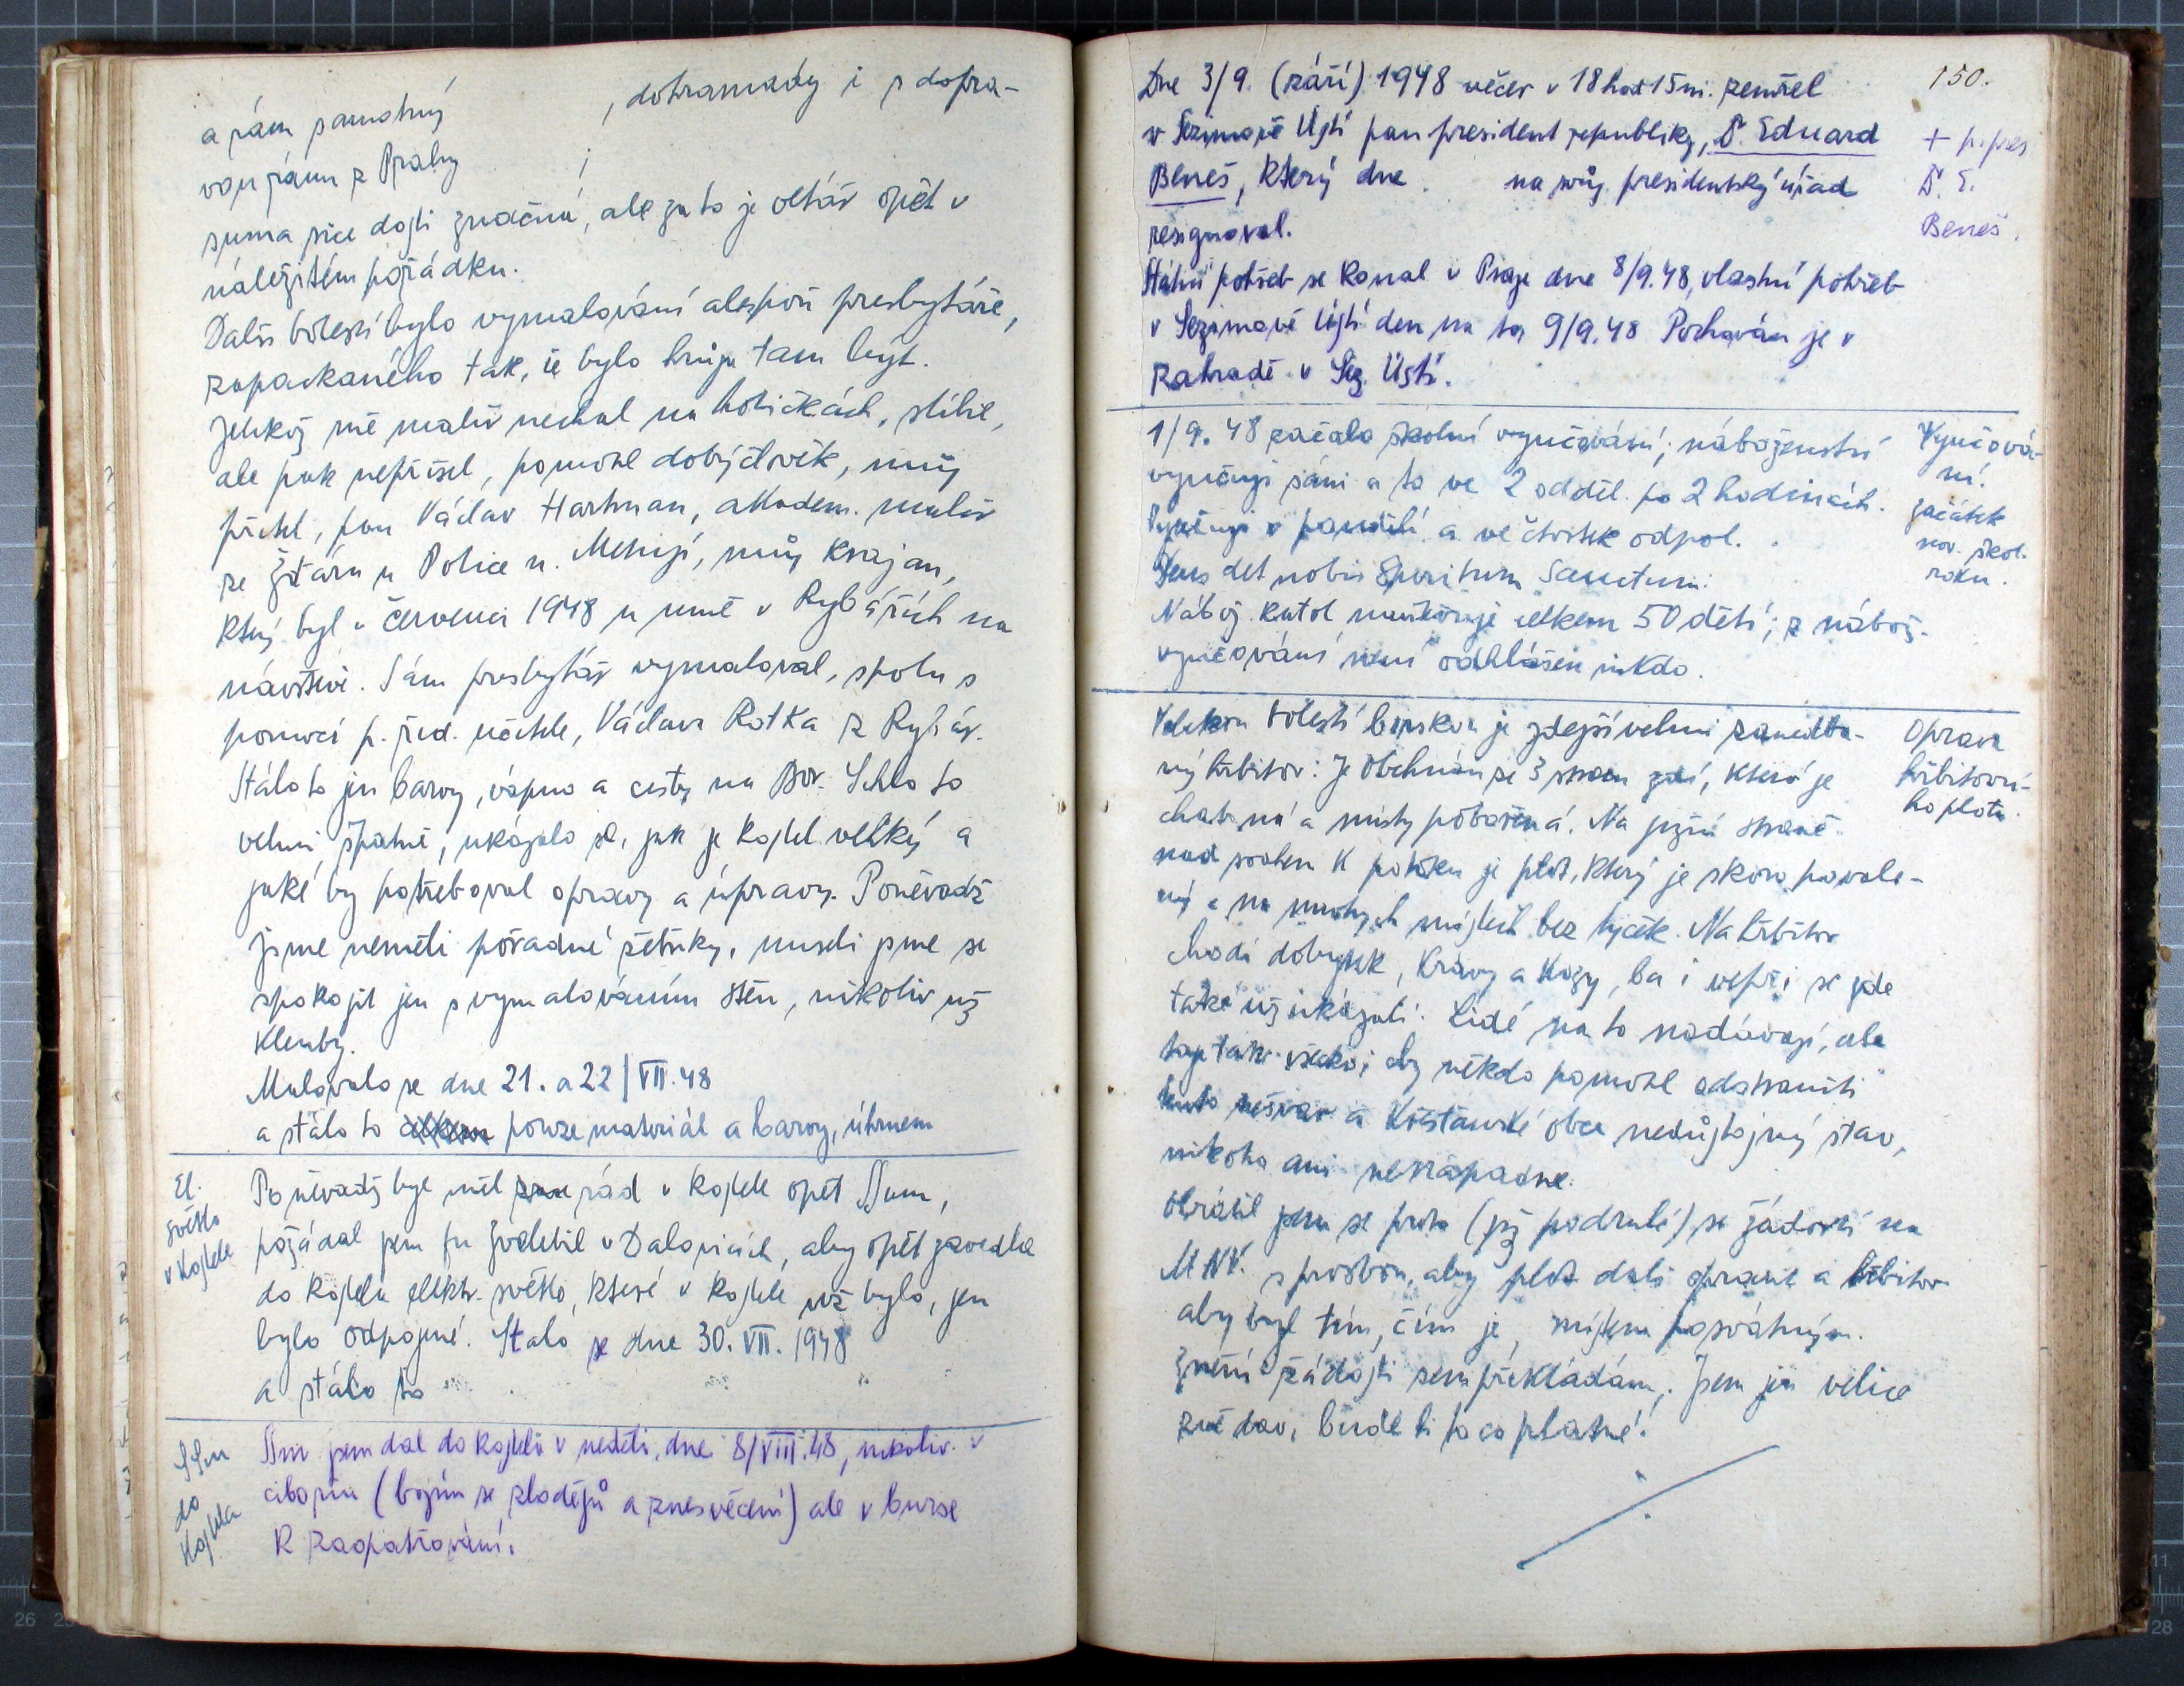 a rám samotný , dohromady i s dopra-
vou rámu z Prahy ;
suma sice dosti značná, ale za to je oltář opět v
náležitém pořádku.
Další bolestí bylo vymalování alespoň presbytáře,
zapackaného tak, že bylo hrůza tam býti.
Jelikož mě malíř nechal na holičkách, slíbil,
ale pak nepřišel, pomohl dobrý člověk, můj
přítel, pan Václav Hartman, akadem. malíř
ze Žďáru u Police n. Metují, můj krajan,
který byl v červenci 1948 u mne v Rybářích na
návštěvě. Sám presbytář vymaloval, spolu s
pomocí p. říd. učitele, Václava Rotka z Rybář.
Stálo to jen barvy, vápno a cesty na Bor. Schlo to
velmi špatně, ukázalo se, jak je kostel veliký a
jaké by potřeboval opravy a úpravy. Poněvadž
jsme neměli pořádné žebříky, museli jsme se
spokojit jen s vymalováním stěn, nikoliv už
klenby.
Malovalo se dne 21. a 22/VII. 48
a stálo to pouze materiál a barvy, úhrnem
El.
světlo
v kostele
Poněvadž bych měl rád v kostele opět SSmum,
požádal jsem fu v Dalovicích, aby opět zavedla
do kostela elektr. světlo, které v kostele už bylo, jen
bylo odpojené. Stalo se dne 30. VII. 1948
a stálo to
SSmum
do
kostela
SSmum jsem dal do kostela v neděli, dne 8/VIII. 48, nikoliv v
ciboriu (bojím se zlodějů a znesvěcení) ale v burse
k zaopatřování.
150.
Dne 3/9. (září) 1948 večer v 18 hod 15 m. zemřel
v Sezimově Ústí pan president republiky, Dr. Eduard
Beneš, který dne na svůj presidentský úřad
resignoval.
+ p. pres
Dr. E.
Beneš.
Státní pohřeb se konal v Praze dne 8/9. 48, vlastní pohřeb
v Sezimově Ústí den na to, 9/9. 48 Pochován je v
zahradě v Sez. Ústí.
1/9. 48 začalo školní vyučování; náboženství
vyučuji sám a to ve 2 odděl. po 2 hodinách.
Vyučuji v pondělí a ve čtvrtek odpol.
Deus det nobis Spiritum Sanctum.
Nábož. katol navštěvuje celkem 50 dětí; z nábož.
vyučování není odhlášen nikdo.
Vyučová-
ní.
začátek
nov. škol.
roku.
Velikou bolestí borskou je zdejší velmi zanedba-
ný hřbitov: Je obehnán se 3 stran zdí, která je
chatrná a místy pobořená. Na jižní straně
nad svahem k potoku je plot, který je skoro povale-
ný a na mnohých místech bez tyček. Na hřbitov
chodí dobytek, krávy a kozy, ba i vepři se zde
také už ukázali. Lidé na to nadávají, ale
to je tak všecko; aby někdo pomohl odstraniti
tento nešvar a křesťanské obce nedůstojný stav,
nikoho ani nenapadne.
Obrátil jsem se proto (již podruhé) se žádostí na
MNV. s prosbou, aby plot dali opravit a hřbitov
aby byl tím, čím je, místem posvátným.
Znění žádosti sem přikládám. Jsem jen velice
zvědav, bude-li to co platné!
Oprava
hřbitovní-
ho plotu.